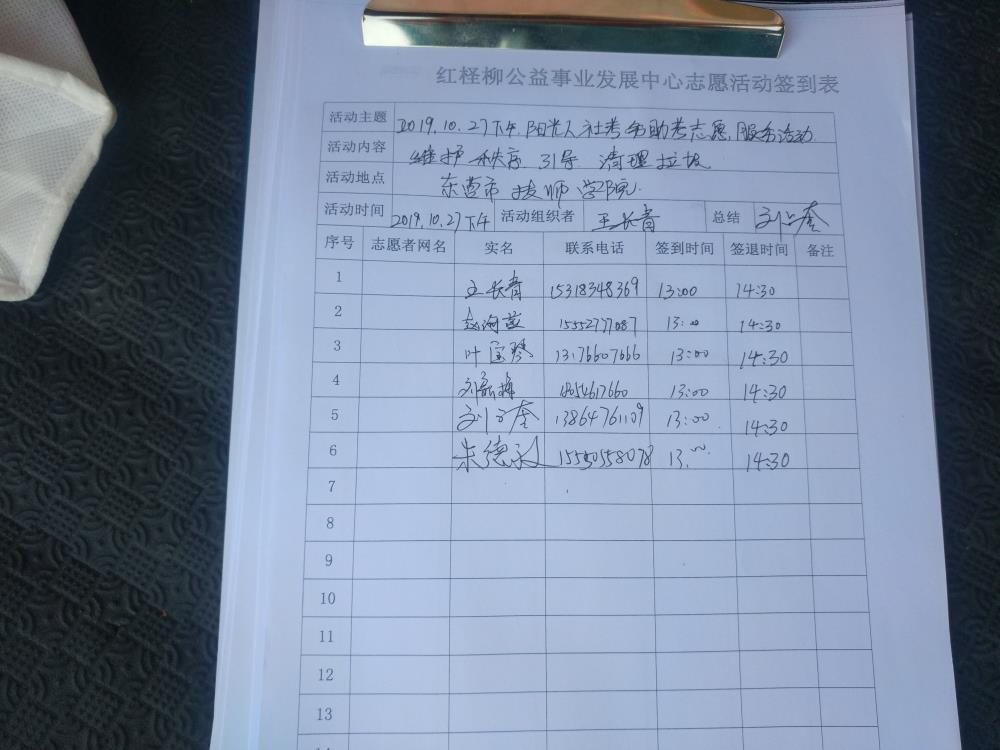 红柽柳公益事业发展中心志愿活动签到表
活动主题 2019.10.27下午 阳光人社考务助考志愿服务活动
活动内容 维护秩序 引导 清理垃圾
活动地点 东营市技师学院
活动时间 2019.10.27下午 活动组织者 王长青 总结
序号 志愿者网名 实名 联系电话 签到时间 签退时间 备注
1 王长青 15318348369 13:00 14:30
2 13:00 14:30
3 叶宝琴 13176607666 13:00 14:30
4 13:00 14:30
5 13864761109 13:00 14:30
6 朱德 15550558078 13:00 14:30
7
8
9
10
11
12
13